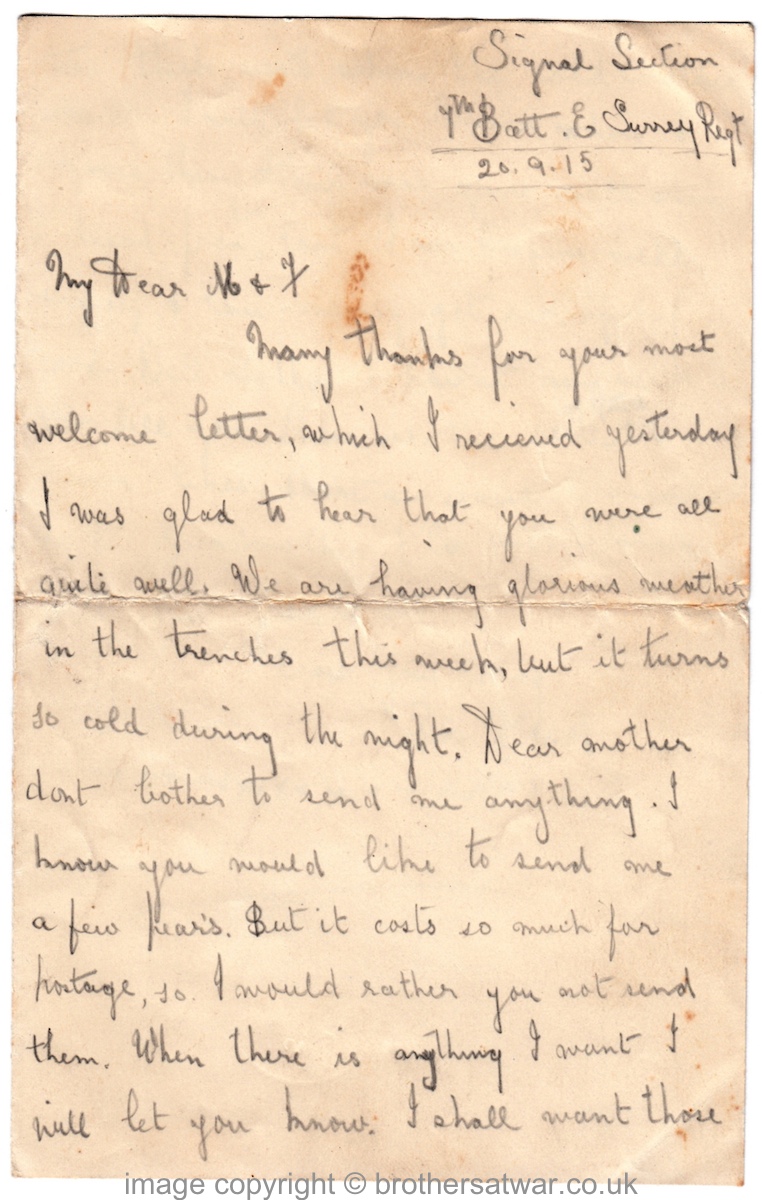 Signal Section
7th Batt. E Surrey Regt
20.9.15
My Dear M & F
Many thanks for your most
welcome letter, which I recieved yesterday
I was glad to hear that you were all
quite well. We are having glorious weather
in the trenches this week, but it turns
so cold during the night. Dear mother
dont bother to send me anything. I
know you would like to send me
a few pears. But it costs so much for
postage, so I would rather you not send
them. When there is anything I want I
will let you know. I shall want those
image copyright © brothersatwar.co.uk